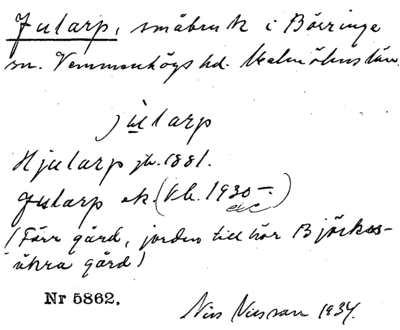 Jularp, småbruk i Börringe
sn. Vemmenhögs hd. Malmöhus län.
jùlarp
Hjularp jb. 1881.
Jularp ek. (Vb. 1930-.)
etc
(Förr gård, jorden tillhör Björkes-
åkra gård)
Nr 5862.
Nils Nilsson 1934.